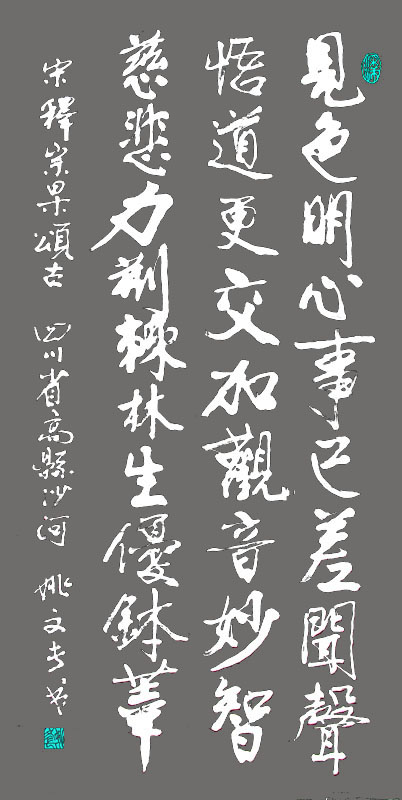 見色明心事已差聞聲
悟道更交加觀音妙智
慈悲力荊棘林生優鉢華
宋釋崇杲頌古 四川省高縣沙河 姚文